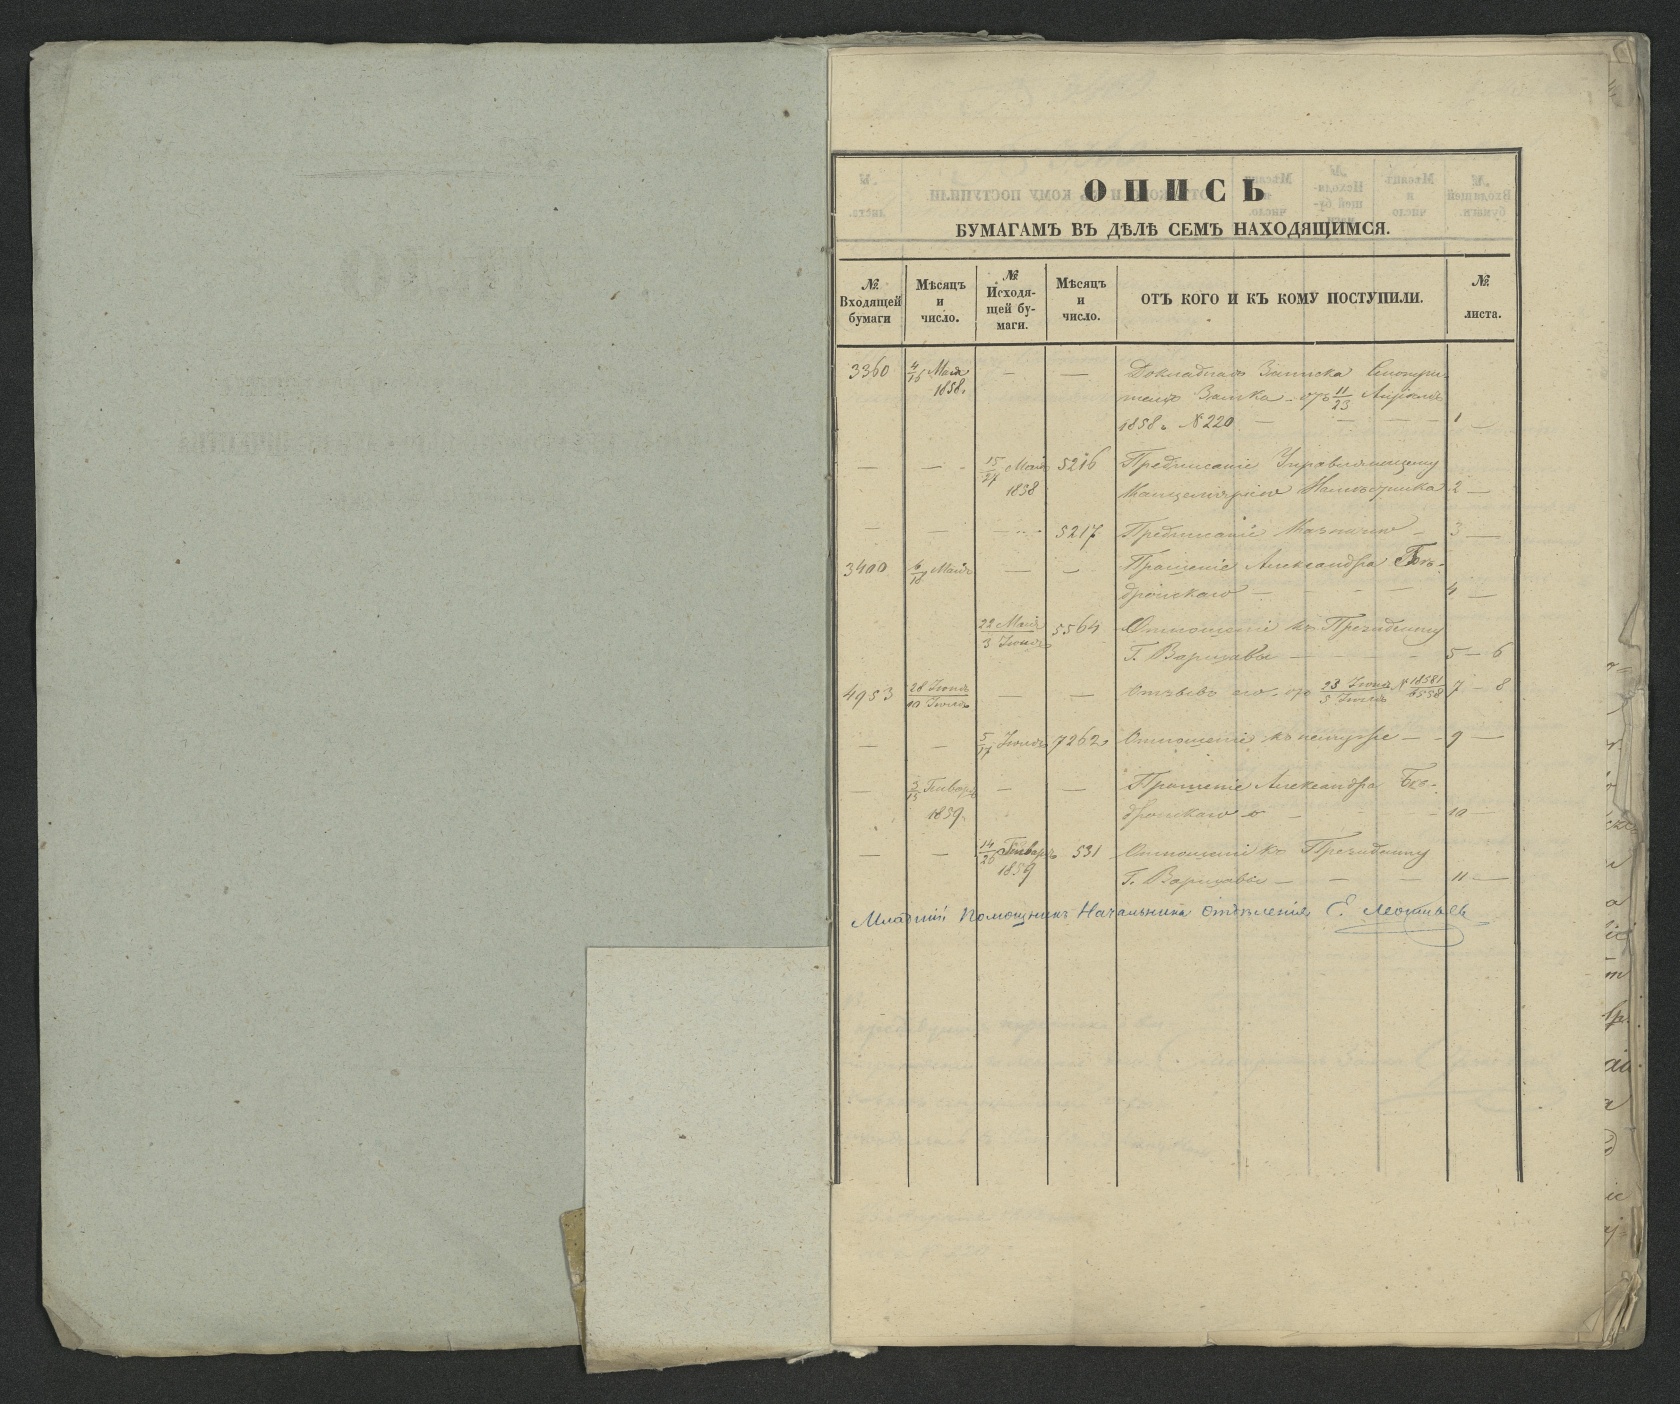 ОПИСЬ
БУМАГАМЪ ВЪ ДѢЛѢ СЕМЪ НАХОДЯЩИМСЯ.
№ Входящей бумаги
Мѣсяцъ и число.
№ Исходящей бумаги.
Мѣсяцъ и число.
ОТЪ КОГО И КЪ КОМУ ПОСТУПИЛИ.
№ листа.
3360 4/16 Мая — — Докладная Записка
1858. Замка отъ 11/23 Апрѣля
1858 г. № 220 — — — 1 —
— — 15/27 Мая 5216 Предписаніе Управляющему
1858 Канцеляріею Намѣстника 2 —
— — — 5217 Предписаніе Казначею — 3 —
3400 6/18 Мая — — Прошеніе Александра
— — — 4 —
22 Мая/3 Іюня 5564 Отношеніе къ Президенту
Г. Варшавы — — — 5 — 6
4953 28 Іюня/10 Іюля — — Отзывъ его отъ 23 Іюня/5 Іюля № 18581/7558 7 — 8
— — 5/17 Іюля 7262 Отношеніе къ нему же — — 9 —
— 3/15 Января — — Прошеніе Александра
1859. 10 —
— — 14/26 Января 531 Отношеніе къ Президенту
1859 Г. Варшавы — — — 11 —
Младшій Помощникъ Начальника Отдѣленія Е. Леонтьевъ